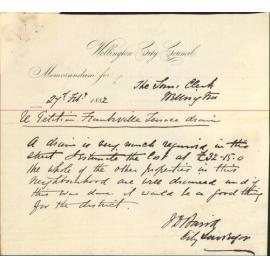 Wellington City Council
Memorandum for
The Town Clerk
Wellington
27th Feb. 1882
Petition Terrace drain
A drain is very much required in this
street I estimate the cost at £32-15.0
the whole of the other properties in this
Neighbourhood are well drained and if
this was done it would be a good thing
for the district.
City Surveyor